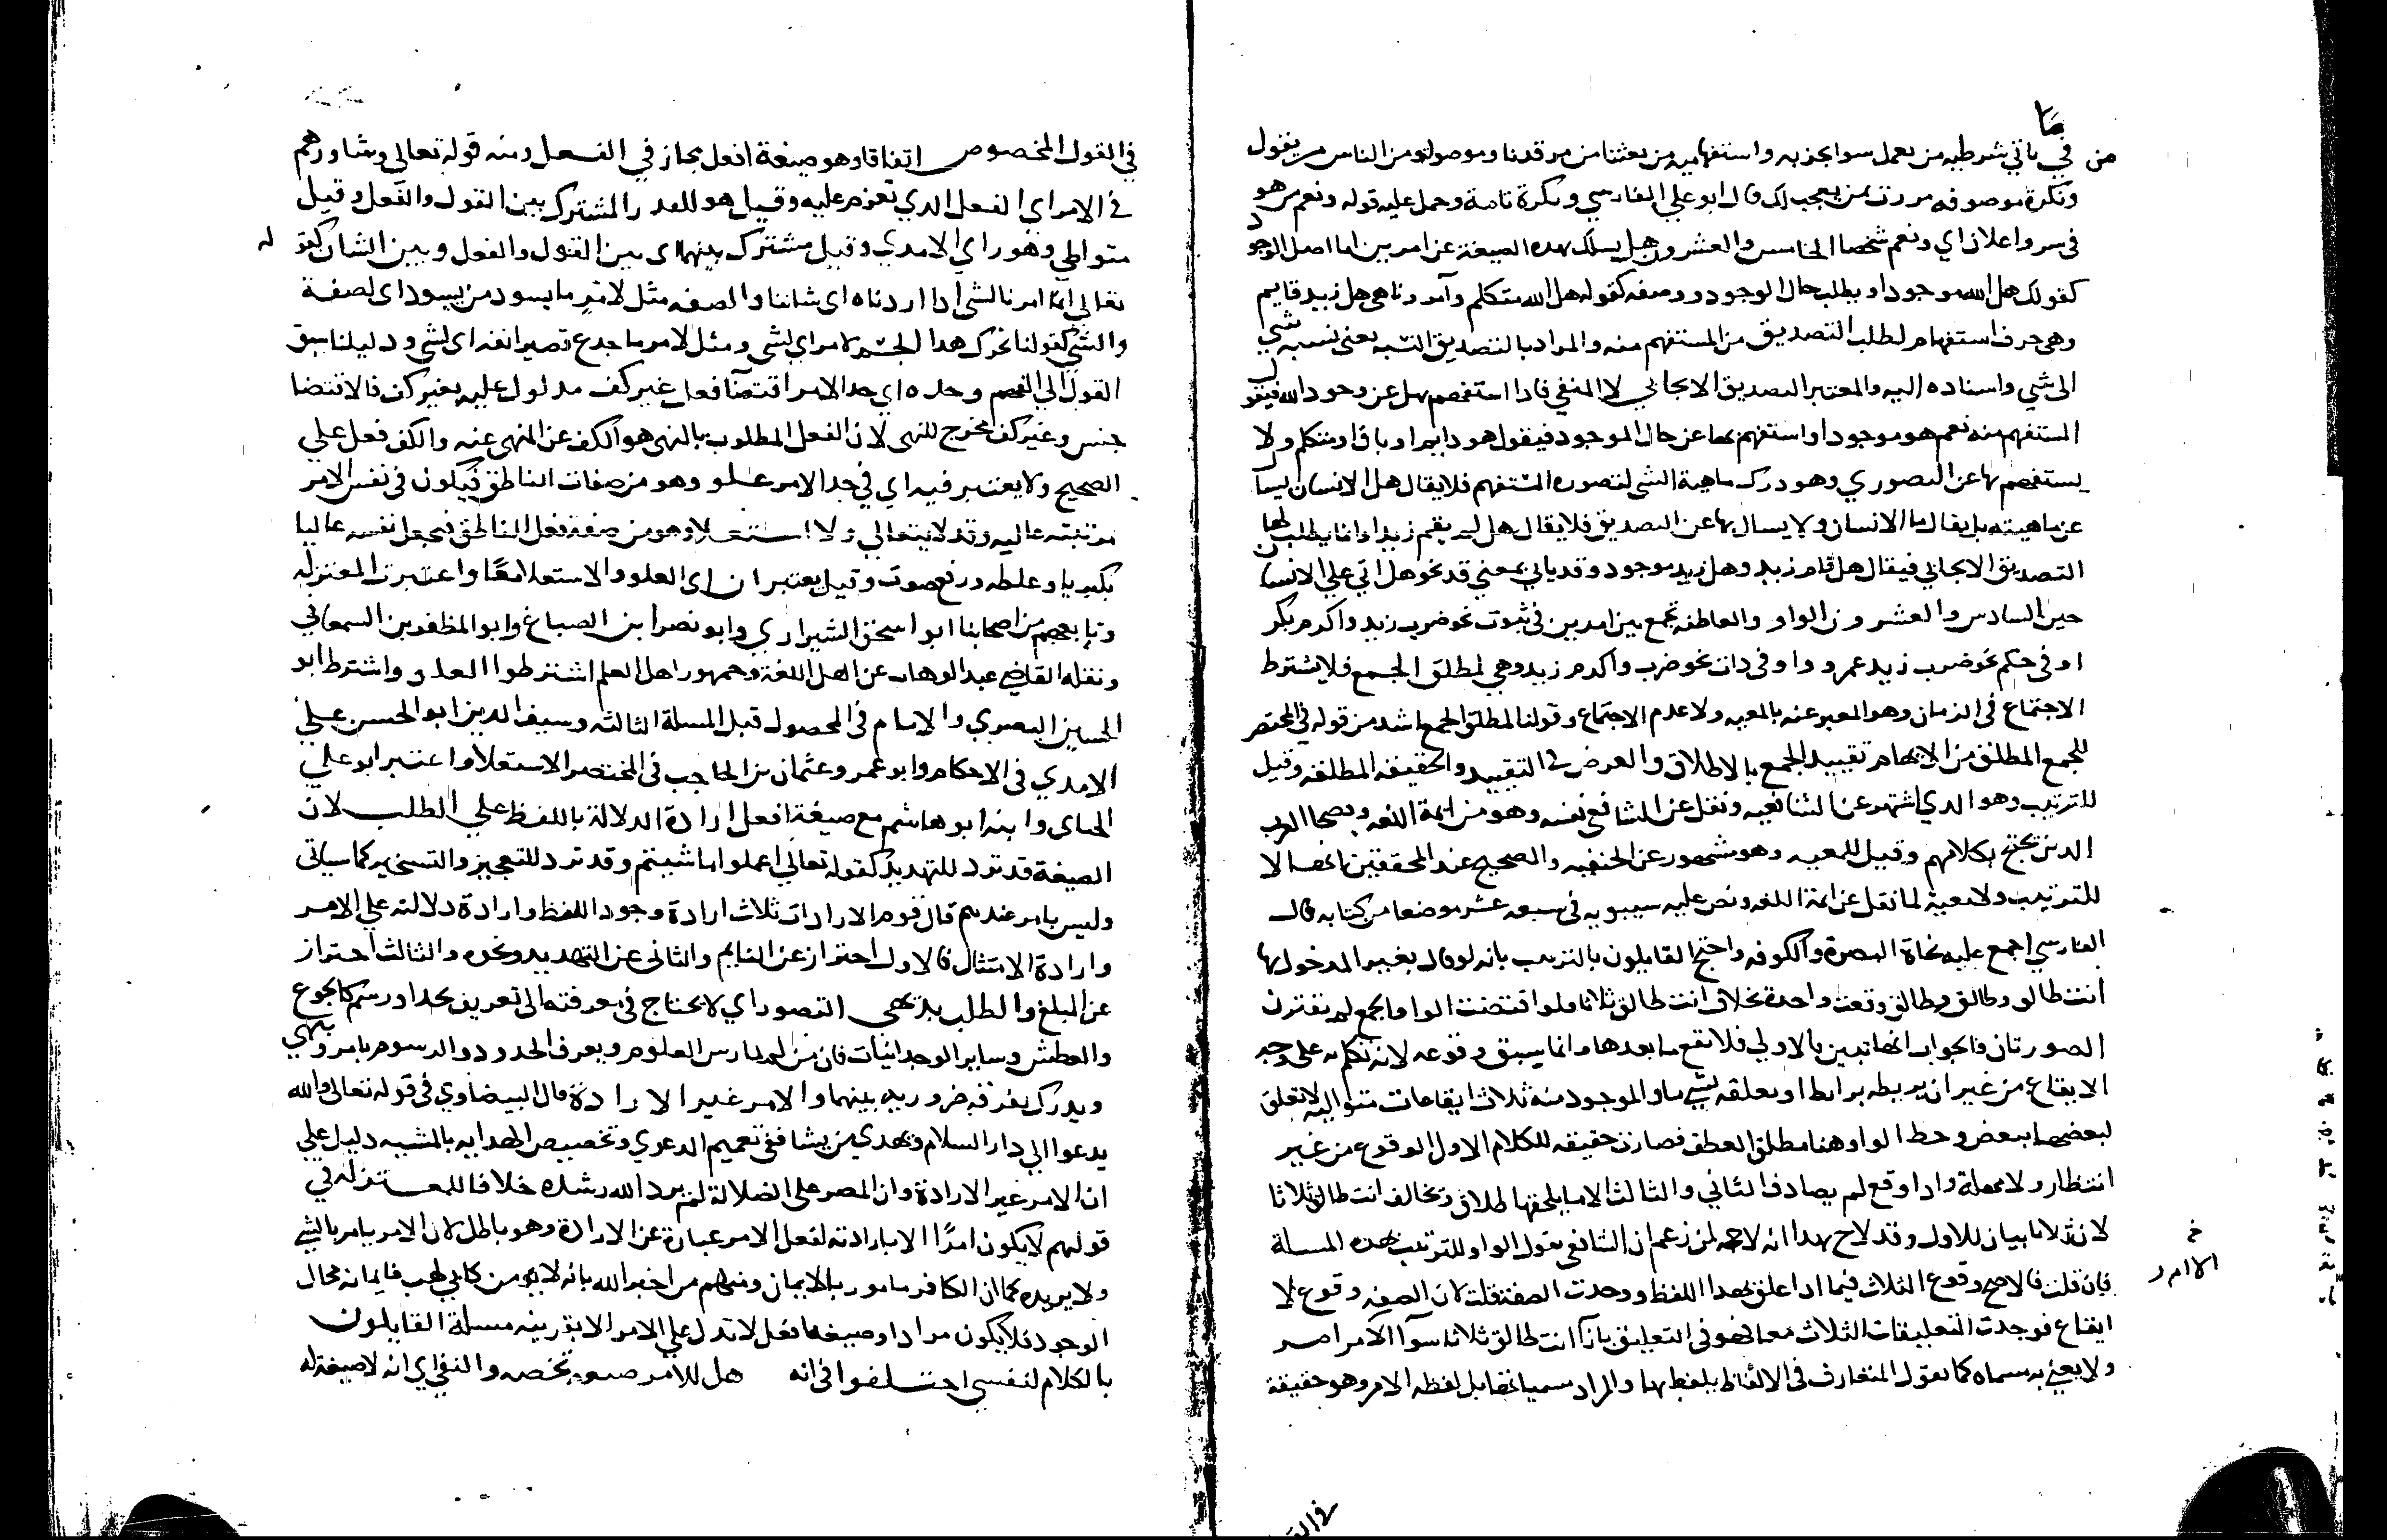 ما
من في ياتي شرطيه من يعمل سوا يجز به واستفهاميه من بعثنا من مرقدنا وموصوله ومن الناس من يقول
ونكرة موصوفه مررت بمن يعجب لك قال ابو علي الفارسي ونكرة تامة وحمل عليه قوله ونعم من هو
في سر واعلان اي ونعم شخصا الخامس والعشرون هل يسلك بهده الصيغة عن امرين اما اصل الوجود
كقولك هل الله موجود او يطلب حال الوجود ووصفه كقوله هل الله متكلم وآمر وناهي هل زيد قايم
وهي حرف استفهام لطلب التصديق من المستفهم منه والمراد بالتصديق النسبه يعني نسبه شي
الى شي واسناده اليه والمعتبر التصديق الايجابي لا المنفي فادا استفهم بهل عن وجود الله فيقول
المستفهم منه نعم هو موجود او استفهم بها عن حال الموجود فيقول هو دايم او باق او متكلم ولا
يستفهم بها عن التصوري وهو درك ماهية الشي لتصوره المستفهم فلا يقال هل الانسان ليسال
عن ماهيته بل يقال ما الانسان ولا يسال بها عن التصديق فلا يقال هل لم يقم زيد وانما يطلب بها
التصديق الايجابي فيقال هل قام زيد وهل زيد موجود وقد ياتي بمعني قد نحو هل اتي علي الانسان
حين السادس والعشرون الواو والعاطفه تجمع بين امرين في ثبوت نحو ضرب زيد واكرم بكر
او في حكم نحو ضرب زيد عمرو او في دات نحو ضرب واكرم زيد وهي لمطلق الجمع فلا يشترط
الاجتماع في الزمان وهو المعبر عنه بالمعيه ولا عدم الاجتماع وقولنا لمطلق الجمع اشد من قوله في المختصر
للجمع المطلق من الايهام تقييد الجمع بالاطلاق والعرض في التقييد والحقيقه المطلقه وقيل
للترتيب وهو الدي اشتهر عن الشافعيه ونقل عن الشافعي نفسه وهو من ايمة اللغه وفصحا العرب
الدين يحتج بكلامهم وقيل للمعيه وهو مشهور عن الحنفيه والصحيح عند المحققين انها لا
للترتيب ولا معية لما نقل عن ايمة اللغه ونص عليه سيبويه في سبعه عشر موضعا من كتابه قال
الفارسي اجمع عليه نحاة البصرة والكوفه واحتج القايلون بالترتيب بانه لو قال بغير المدخول بها
انت طالق وطالق وطالق وقعت واحدة بخلاف انت طالق ثلاثا ولو اقتضت الواو الجمع لم تفترق
الصورتان فالجواب انها تبين بالاولي فلا تقع ما بعدها وانما يسبق وقوعه لانه تكلم به على وجه
الايقاع من غير ان يربطه برابط او يعلقه بشي ما والموجود منه ثلاث ايقاعات متواليه لا تعلق
لبعضها ببعض وحط الواو هنا مطلق العطف فصارت حقيقه للكلام الاول الوقوع من غير
انتظار ولا مهلة وادا وقع لم يصادف الثاني والثالث الا ما يلحقها طلاق وتخالف انت طالق ثلاثا
لان ثلاثا بيان للاول وقد لاح بهدا انه لا حجه لمن زعم ان الشافعي يقول الواو للترتيب بهده المسلة
فان قلت فالاصح وقوع الثلاث فيما ادا علق بهدا اللفظ ووجدت الصفة قلت لان الصيغه وقوع لا
ايقاع فوجدت التعليقات الثلاث معا فهو في التعليق بان انت طالق ثلاثا سوآ الامر امر
ولا يعني به مسماه كما يقول المتعارف في الالفاظ بلفظها والمراد مسميا نحا بل لفظه الامر وهو حقيقة
خ
الامر
في القول المخصوص اتفاقا وهو صيغة افعل مجاز في الفعل ومنه قوله تعالى وشاورهم
في الامر اي الفعل الدي تعزم عليه وقيل هو للقدر المشترك بين القول والفعل وقيل
متواطي وهو راي الامدي وقيل مشترك بينهما اي بين القول والفعل وبين الشان كقوله
تعالى انما امرنا لشي ادا اردناه اي شاننا والصفه مثل لامر ما يسود من يسود اي لصفة
والشي كقولنا تحرك هدا الجسم لامر اي لشي ومثل لامر ما جدع قصير انفه اي لشي ودليلنا سبق
القول الى الفهم وحده اي حد الامر اقتضآ فعل غير كف مدلول عليه بغير كف فالاقتضا
جنس وغير كف مخرج للنهي لان الفعل المطلوب بالنهي هو الكف عن المنهي عنه والكف فعل علي
الصحيح ولا يعتبر فيه اي في حد الامر علو وهو من صفات الناطق فيكون في نفس الامر
مرتبته عاليه وقد لا يتعالي ولا استعلا وهو من صفة فعل الناطق فيجعل نفسه عاليا
بكبريا وغلظه ورفع صوت وقيل يعتبران اي العلو والاستعلا معًا واعتبرت المعتزله
وتابعهم من اصحابنا ابو اسحق الشيرازي وابو نصر ابن الصباغ وابو المظفر بن السمعاني
ونقله القاضي عبد الوهاب عن اهل اللغة وجمهور اهل العلم اشترطوا العلو واشترط ابو
الحسين البصري والامام في المحصول قبل المسلة الثالثه وسيف الدين ابو الحسن علي
الامدي في الاحكام وابو عمرو عثمان بن الحاجب في المختصر الاستعلا واعتبر ابو علي
الجباى وابنه ابو هاشم مع صيغة افعل ارادة الدلالة باللفظ علي الطلب لان
الصيغة قد ترد للتهديد كقوله تعالى اعملوا ما شيتم وقد ترد للتعجيز والتسخير كما سياتي
وليس بامر عندهم قال قوم الارادات ثلاث ارادة وجود اللفظ وارادة دلالته علي الامر
وارادة الامتثال فالاول احتراز عن النايم والثاني عن التهديد ونحوه والثالث احتراز
عن المبلغ والطلب بديهي التصور اي لا يحتاج في معرفته الى تعريف بحد او رسم كالجوع
والعطش وساير الوجدانيات فان من لم يمارس العلوم ويعرف الحدود والرسوم يامر وينهي
ويدرك تفرقه ضروريه بينهما والامر غير الارادة قال البيضاوي في قوله تعالى والله
يدعوا الي دار السلام ويهدي من يشا ففي تعميم الدعوي وتخصيص الهدايه بالمشيه دليل علي
ان الامر غير الارادة وان المصر على الضلالة لم يرد الله رشده خلافا للمعتزله في
قولهم لا يكون امرًا الا بارادته لفعل الامر عبارة عن الارادة وهو باطل لان الامر يامر بالشي
ولا يريده كما ان الكافر مامور بالايمان ومنهم من اخبر الله بانه لا يومن كابي لهب فايمانه محال
الوجود فلا يكون مرادا وصيغة افعل لا تدل علي الامر الا بقرينه مسلة القايلون
بالكلام النفسي اختلفوا في انه هل للامر صيغه تخصه والنفي اي انه لا صيغة له